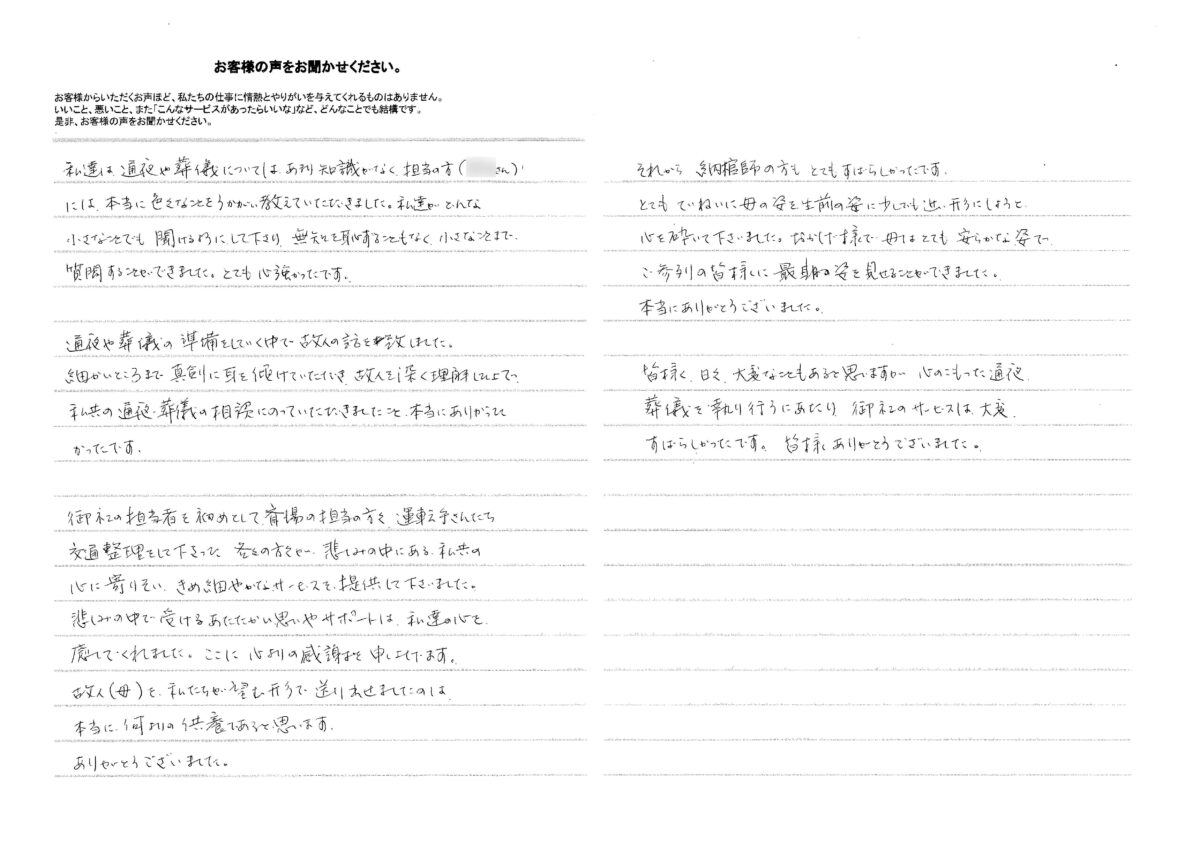 お客様の声をお聞かせください。
お客様からいただくお声ほど、私たちの仕事に情熱とやりがいを与えてくれるものはありません。
いいこと、悪いこと、また「こんなサービスがあったらいいな」など、どんなことでも結構です。
是非、お客様の声をお聞かせください。
私達は、通夜や葬儀については、あまり知識がなく、担当の方(さん)
には、本当に色々なことをうかがい教えていただきました。私達が どんな
小さなことでも 聞けるようにして下さり、無知を恥することもなく、小さなことまで
質問することができました。とても心強かったです。
通夜や葬儀の準備をしていく中で故人の話を致しました。
細かいところまで真剣に耳を傾けていただき、故人を深く理解した上で、
私共の通夜・葬儀の相談にのっていただきましたこと、本当にありがた
かったです。
御社の担当者を初めとして、斎場の担当の方々、運転手さんたち
交通整理をして下さった 各々の方々が、悲しみの中にある、私共の
心に寄りそい、きめ細やかなサービスを、提供して下さいました。
悲しみの中で受けるあたたかい思いやサポートは、私達の心を
癒してくれました。ここに 心よりの感謝を申し上げます。
故人(母)を、私たちが望む形で送り出せましたのは、
本当に、何よりの供養であると思います。
ありがとうございました。
それから 納棺師の方も とてもすばらしかったです。
とても ていねいに母の姿を生前の姿に少しでも近い形にしようと、
心を砕いて下さいました。おかげ様で 母はとても 安らかな姿で、
ご参列の皆様に 最期の姿を見せることができました。
本当にありがとうございました。
皆様、日々、大変なこともあると思いますが、心のこもった通夜、
葬儀を執り行うにあたり 御社のサービスは、大変、
すばらしかったです。 皆様、ありがとうございました。